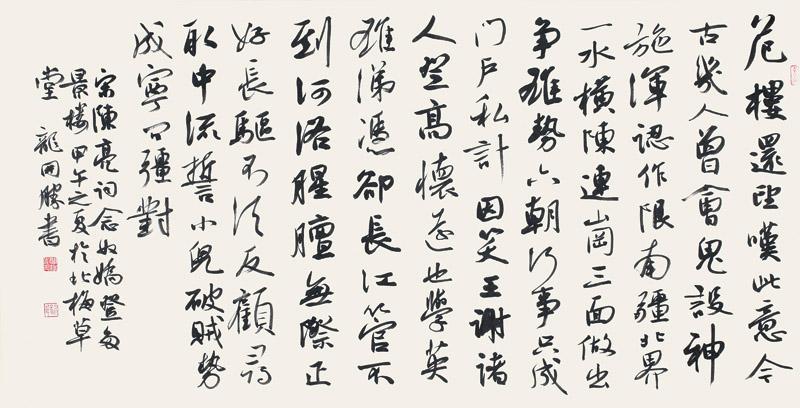 危樓還望嘆此意今
古幾人曾會鬼設神
施渾認作限南疆北界
一水橫陳連崗三面做出
爭雄勢六朝何事只成
門戶私計因笑王謝諸
人登高懷遠也學英
雄涕憑卻長江管不
到河洛腥膻無際正
好長驅不須反顧尋
取中流誓小兒破賊勢
成寧問疆對
宋陳亮詞念奴嬌登多
景樓甲午之夏於北梅草
堂 龍開勝書